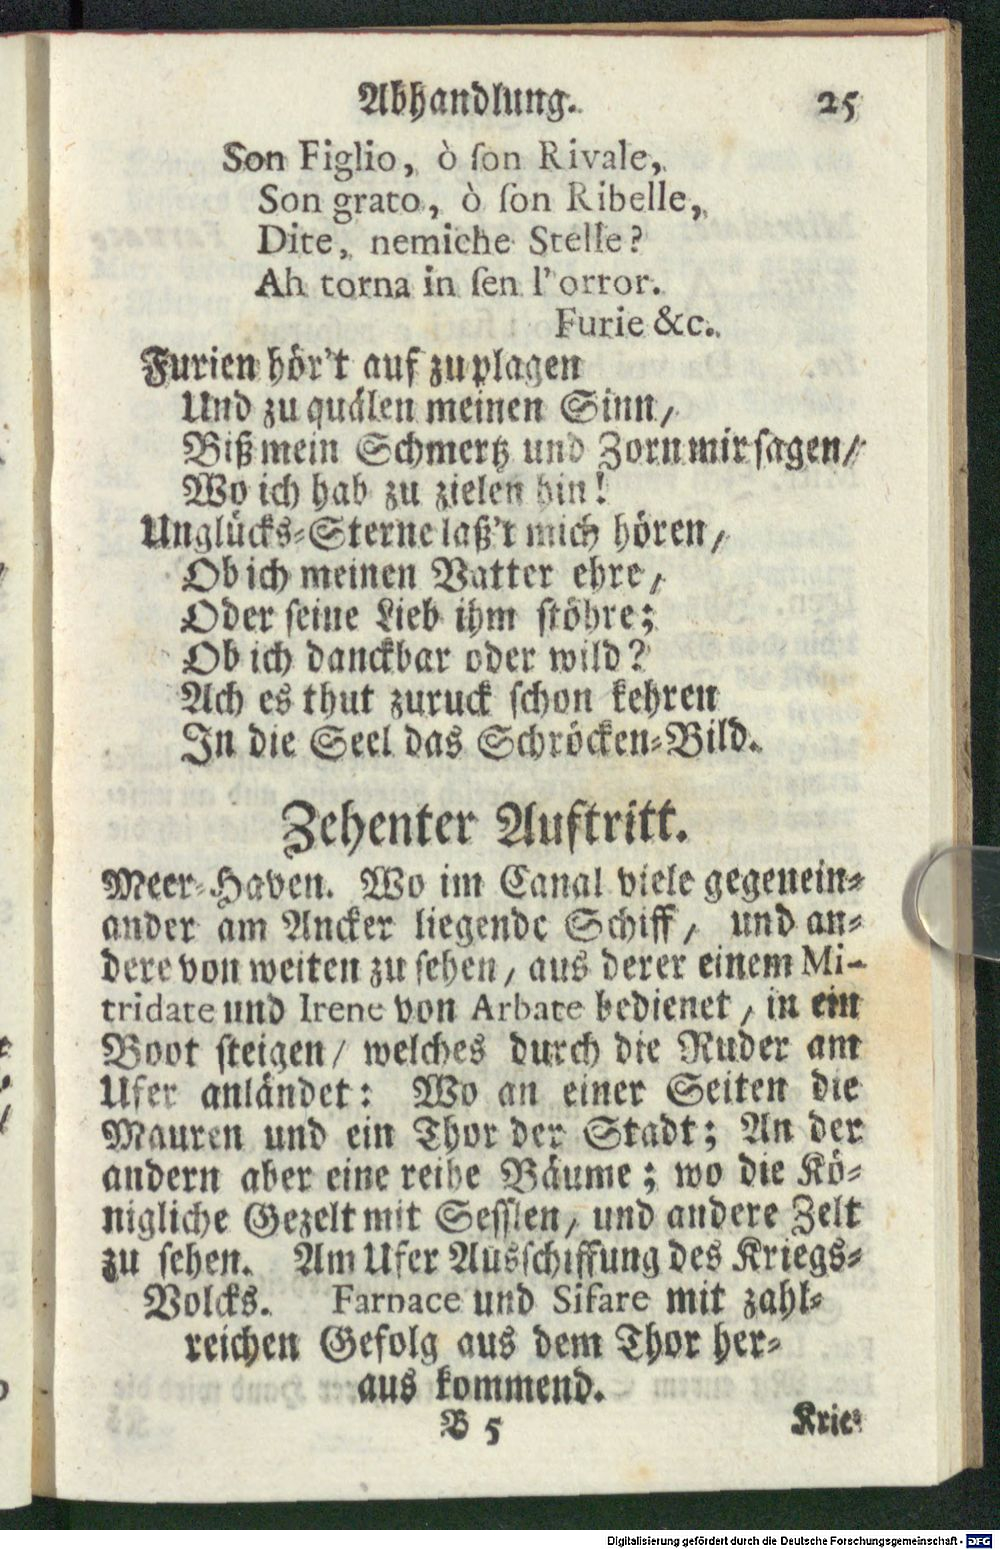 Abhandlung. 25
Son Figlio, ò ſon Rivale,
Son grato, ò ſon Ribelle,
Dite, nemiche Stelle?
Ah torna in ſen l'orror.
Furie &c.
Furien hör't auf zu plagen
Und zu quälen meinen Sinn/
Biß mein Schmertz und Zorn mir ſagen/
Wo ich hab zu zielen hin!
Unglücks-Sterne laß't mich hören/
Ob ich meinen Vatter ehre/
Oder ſeine Lieb ihm ſtöhre;
Ob ich danckbar oder wild?
Ach es thut zuruck ſchon kehren
In die Seel das Schröcken-Bild.
Zehenter Auftritt.
Meer-Haven. Wo im Canal viele gegenein-
ander am Ancker liegende Schiff/ und an-
dere von weiten zu ſehen/ aus derer einem Mi-
tridate und Irene von Arbate bedienet/ in ein
Boot ſteigen/ welches durch die Ruder am
Ufer anländet: Wo an einer Seiten die
Mauren und ein Thor der Stadt; An der
andern aber eine reihe Bäume; wo die Kö-
nigliche Gezelt mit Seſſlen/ und andere Zelt
zu ſehen. Am Ufer Ausſchiffung des Kriegs-
Volcks. Farnace und Sifare mit zahl-
reichen Gefolg aus dem Thor her-
aus kommend.
B 5 Krie-
Digitalisierung gefördert durch die Deutsche Forschungsgemeinschaft - DFG